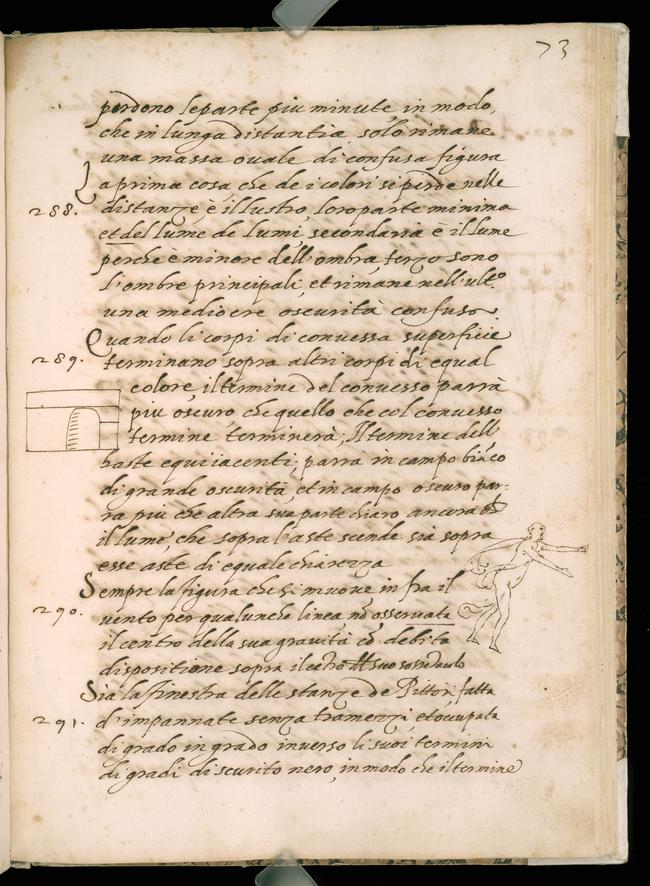 73
perdono le parte piu minute, in modo,
che in lunga distantia solo rimane
una massa ouale di confusa figura
La prima cosa che de i colori si perde nelle
288.
distanze è il lustro, loro parte minima
et del lume de lumi secondaria è il lume
perche è minore dell'ombra, terzo sono
l'ombre principali, et rimane nell'ult.o
una mediocre oscurità confusa.
Quando li corpi di conuessa superficie
289.
terminano sopra altri corpi di equal
colore, il termine del conuesso parrà
piu oscuro che quello che col conuesso
termine terminerà; Il termine dell'
haste equiiacenti, parrà in campo biãco
di grande oscurità, et in campo oscuro par-
ra piu che altra sua parte chiaro ancora
il lume, che sopra l'aste scende sia sopra
esse aste di equale chiarezza
Sempre la figura che si muoue infra il
290.
uento per qualunche linea, nõ osseruata
il centro della sua grauità cõ debita
dispositione sopra il cẽtro suo
Sia la finestra delle stanze de Pittori fatta
291.
d'impannate senza tramezzi, et occupata
di grado in grado inuerso li suoi termini
di gradi di scurito nero, in modo che il termine